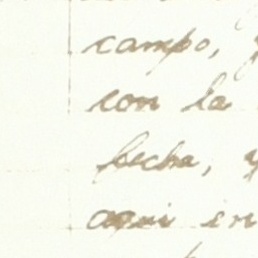 campo, y
con la
fecha, y
aqui en